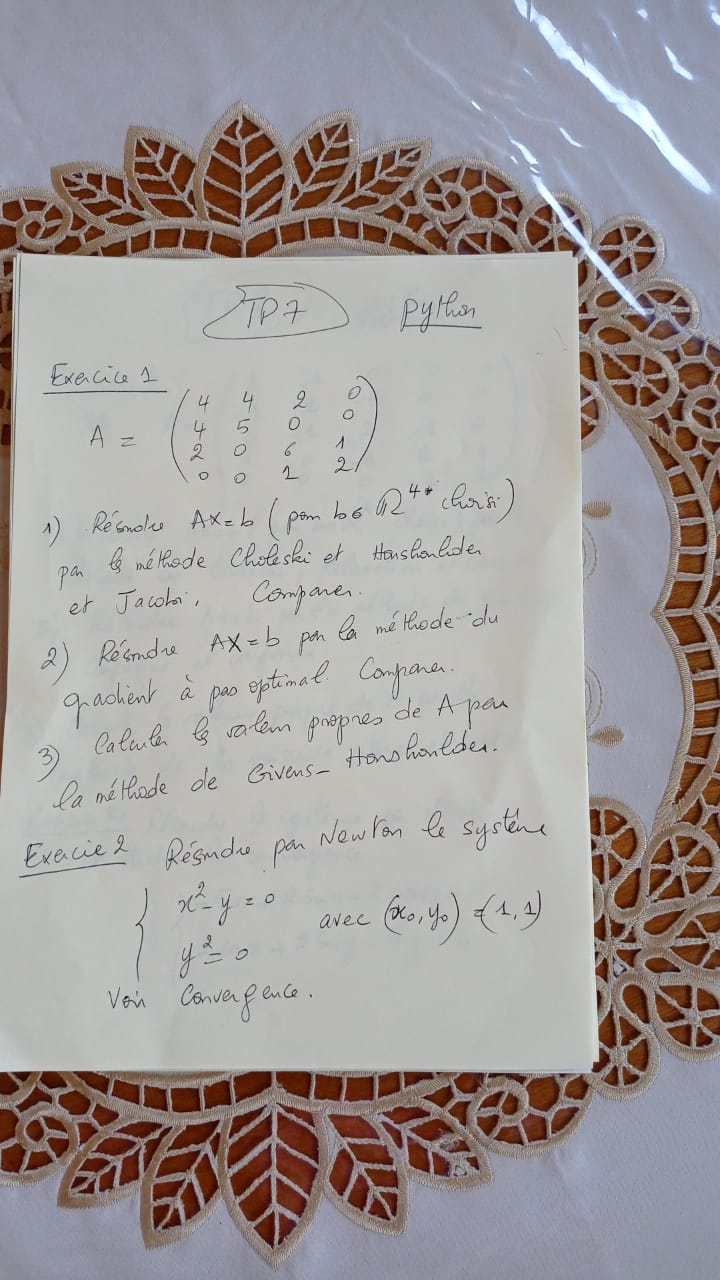 TP7 python
Exercice 1
A = ( 4 4 2 0
4 5 0 0
2 0 6 1
0 0 1 2 )
1) Résoudre AX=b (pour b∈ ℝ⁴ choisi)
par la méthode Choleski et Honshoulder
et Jacobi, Comparer.
2) Résoudre AX=b par la méthode du
gradient à pas optimal. Comparer.
3) Calculer les valeurs propres de A par
la méthode de Givens-Honshoulder.
Exercie 2 Résoudre par Newton le système
{ x²-y=0
y²=0 avec (x₀,y₀)=(1,1)
Voir Convergence.